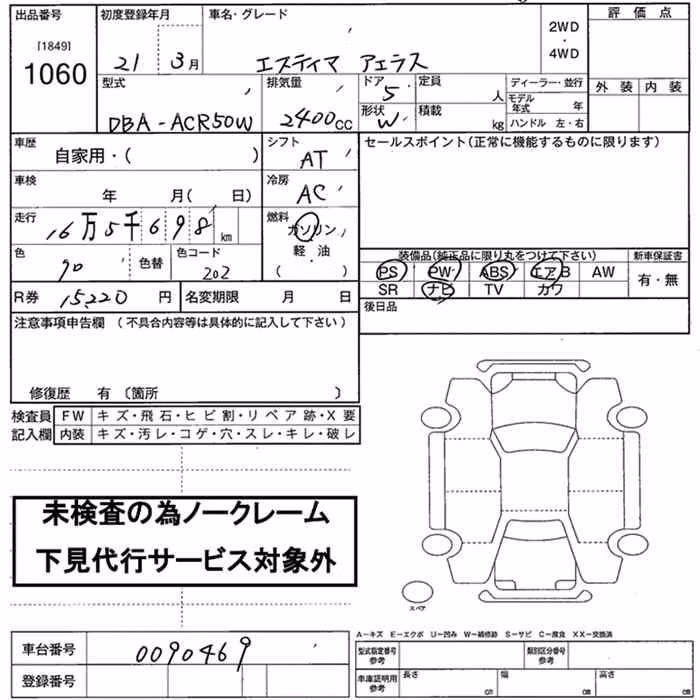 出品番号 初度登録年月 車名・グレード 2WD・4WD 評価点
[1849]
1060 21年 3月 エスティマ アエラス
型式 排気量 ドア 定員 ディーラー・並行 外装 内装
DBA-ACR50W 2400cc 5 人 モデル年式 年
形状 W 積載 kg ハンドル 左・右
車歴 シフト セールスポイント(正常に機能するものに限ります)
自家用・( ) AT
車検 冷房
年 月( 日) AC
走行 燃料
16万5千698km ガソリン
軽・油
( )
色 色替 色コード 装備品(純正品に限り丸をつけて下さい) 新車保証書
202 PS PW ABS エアB AW 有・無
R券 15,220円 名変期限 月 日 SR ナビ TV カワ
後日品
注意事項申告欄 (不具合内容等は具体的に記入して下さい)
修復歴 有 (箇所 )
検査員 FW キズ・飛石・ヒビ割・リペア跡・X要
記入欄 内装 キズ・汚レ・コゲ・穴・スレ・キレ・破レ
未検査の為ノークレーム
下見代行サービス対象外
スペア
A-キズ E-エクボ U-凹み W-補修跡 S-サビ C-腐食 XX-交換済
車台番号 0090469 型式指定番号 参考 類別区分番号 参考
登録番号 車庫証明用 参考 長さ cm 幅 cm 高さ cm